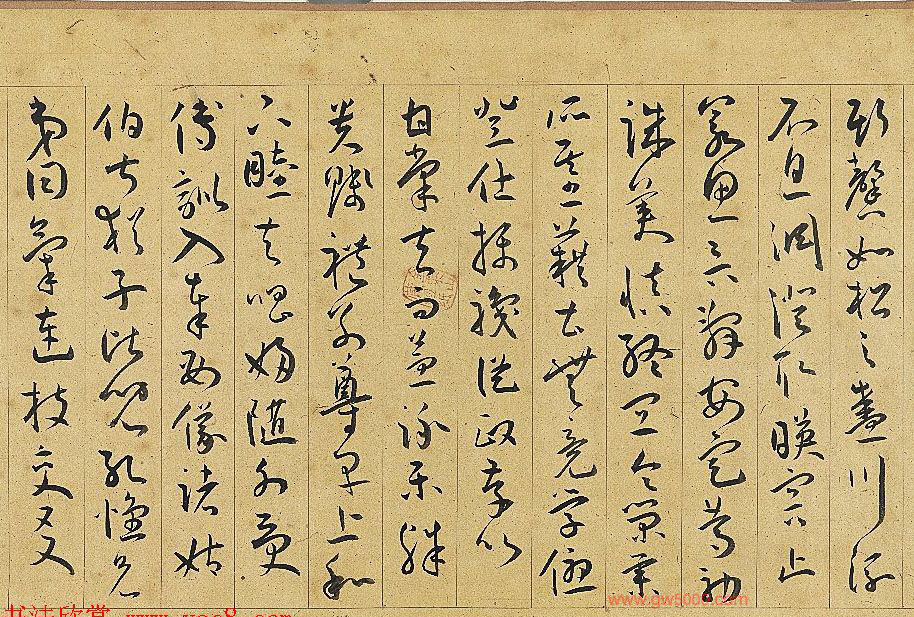 斯馨如松之盛川流
不息淵澄取暎容止
若思言辭安定篤初
誠美慎終宜令榮業
所基藉甚無竟學優
登仕攝職從政存以
甘棠去而益詠樂殊
貴賤禮別尊卑上和
下睦夫唱婦隨外受
傅訓入奉母儀諸姑
伯叔猶子比兒孔懷兄
弟同氣連枝交友
书法欣赏